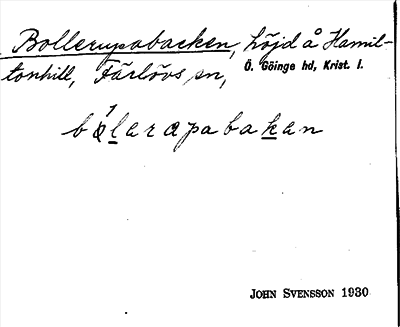 Bollerupabacken, höjd å Hamil-
tonhill, Färlövs sn, Ö. Göinge hd, Krist. l.
bo᾽lerapabakan
JOHN SVENSSON 1930